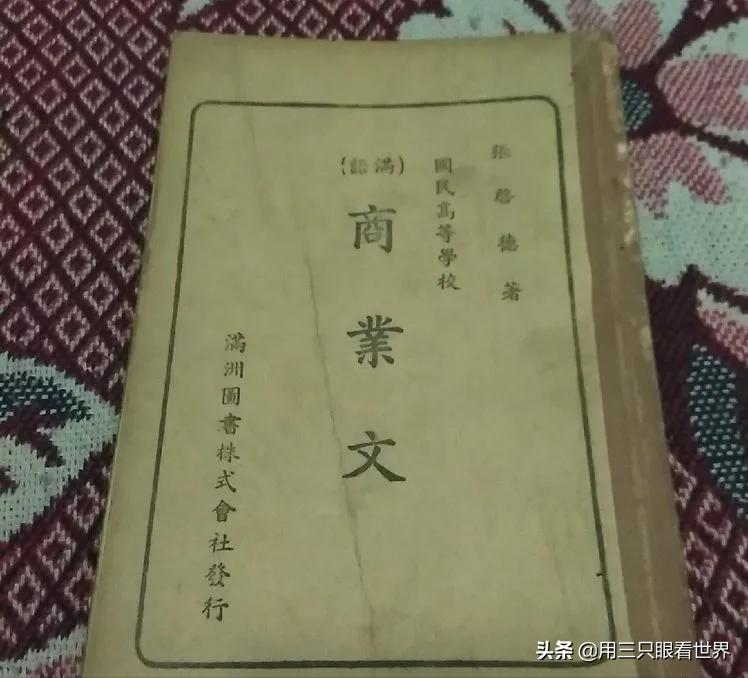 張啓德著
國民高等學校
(滿語)
商業文
滿洲圖書株式會社發行
头条 @用三只眼看世界